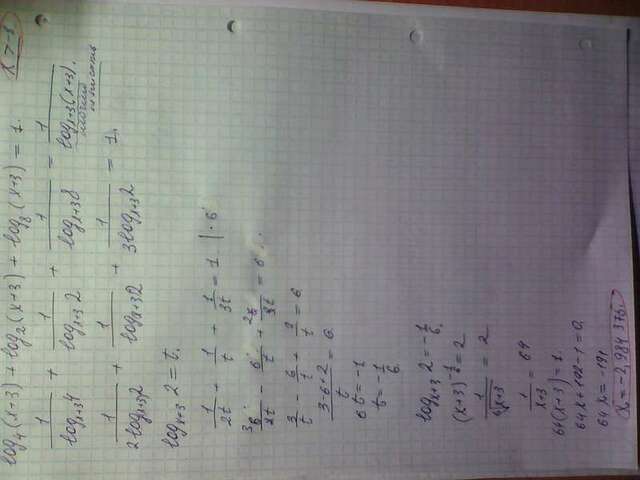 log₄(x+3) + log₂(x+3) + log₈(x+3) = 1. x > -3
1/log_{x+3}4 + 1/log_{x+3}2 + 1/log_{x+3}8 = 1/log_{x+3}(x+3).
можно
не писать
1/2log_{x+3}2 + 1/log_{x+3}2 + 1/3log_{x+3}2 = 1.
log_{x+3} 2 = t.
1/2t - 1/t + 1/3t = 1 | · 6
6/2t - 6/t + 6/3t = 6
3/t - 6/t + 2/t = 6
(3-6+2)/t = 6
6t = -1
t = -1/6
log_{x+3} 2 = -1/6.
(x+3)^{-1/6} = 2
1/⁶√(x+3) = 2
1/(x+3) = 64
64(x+3) = 1.
64x + 192 - 1 = 0.
64x = -191
x = -2,984375.